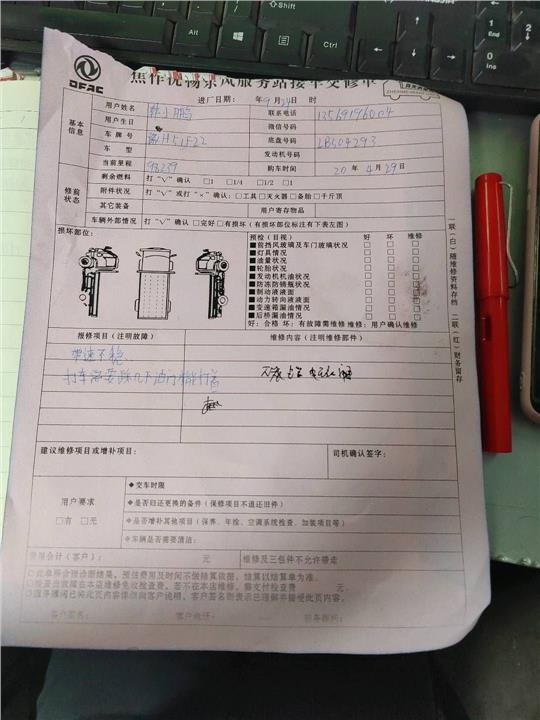 DFAC
焦作优畅东风服务站接车交修单
进厂日期: 年9月24日 时
基本信息
用户姓名 韩小鹏 联系电话 13569196004
用户生日 微信号码
车牌号 豫H51F22 底盘号码 LB504293
车 型 发动机号码
当前里程 98239 购车时间 20 年 4 月 29 日
修前状态
剩余燃料 打“√”确认 □1 □1/4 □1/2 □1
附件状况 打“√”或打“×”确认: □工具 □灭火器 □备胎 □千斤顶
其它装备 用户寄存物品
车辆外部情况 打“√”确认 □完好 □有损坏(有损坏部位标注有下表左图)
损坏部位:
预检(目视) 好 坏 维修
■前挡风玻璃及车门玻璃状况 □ □ □
■灯具情况 □ □ □
■油量状况 □ □ □
■轮胎状况 □ □ □
■发动机机油状况 □ □ □
■防冻防锈瓶状况 □ □ □
■制动液液面 □ □ □
■动力转向液液面 □ □ □
■变速箱漏油情况 □ □ □
■后桥漏油情况 □ □ □
好:合格 坏:有故障需维修 维修:用户确认维修
一联(白)随维修资料存档 二联(红)财务留存
报修项目(注明故障) 维修内容(注明维修部件)
怠速不稳
打车需要踩几下油门才能打着
建议维修项目或增补项目: 司机确认签字:
用户要求
□有 □无
◆交车时限
◆是否归还更换的备件(保修项目不退还旧件)
◆是否增补其他项目(保养、年检、空调系统检查、加装项目等)
◆车辆是否需要清洁:
费用合计(客户): 元 维修及三包件不允许带走